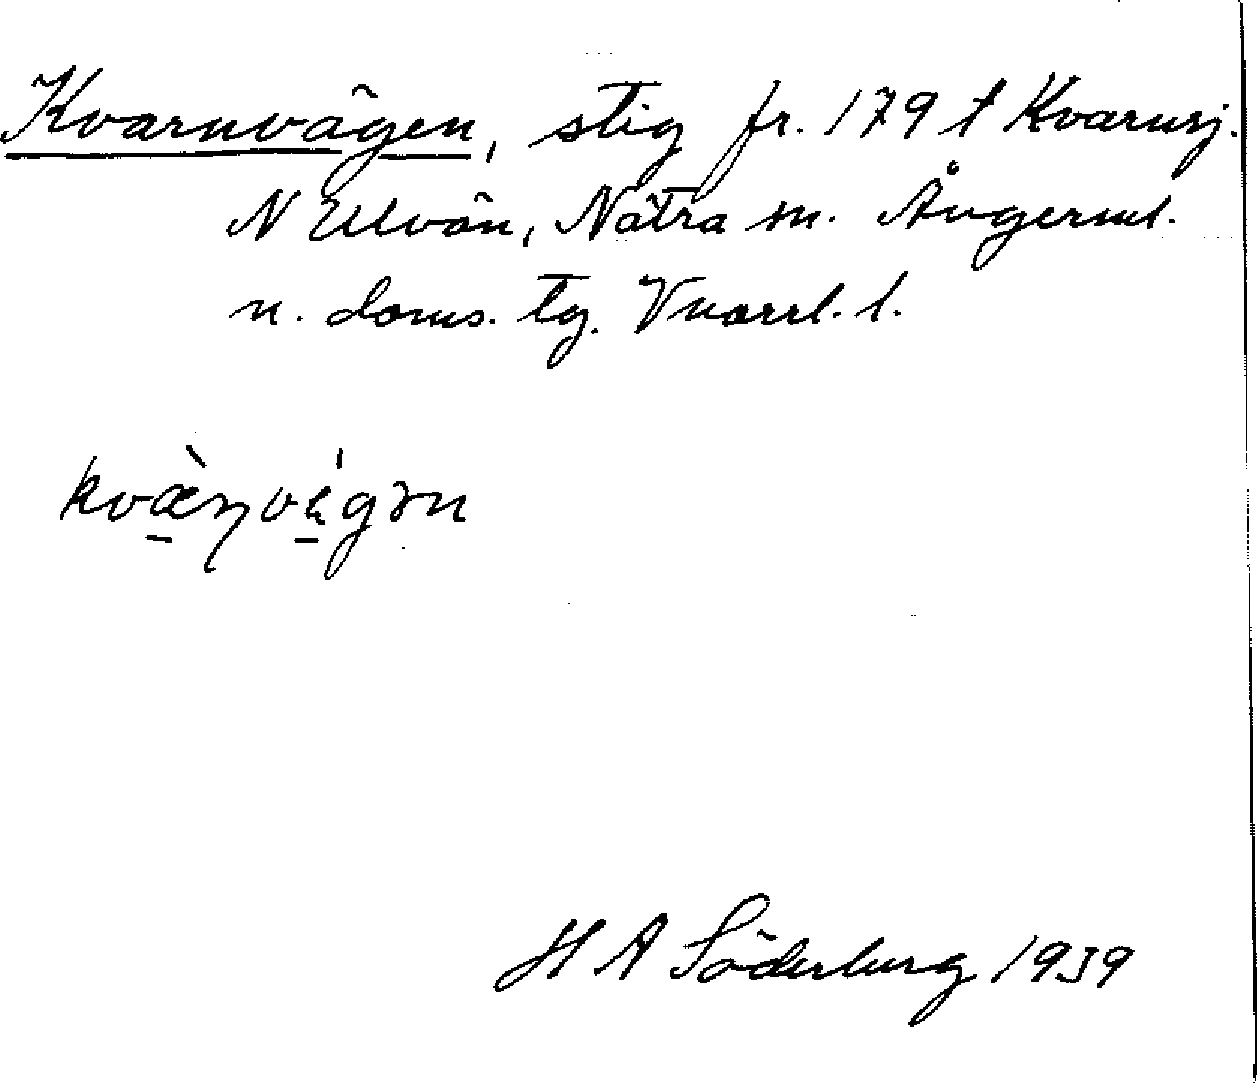 Kvarnvägen, stig fr. 179 t Kvarnsj.
N Ulvön, Nätra sn. Ångerml.
n. doms. tg. Vnorrl. l.
kvæ̀ṇvégən
H A Söderberg 1939